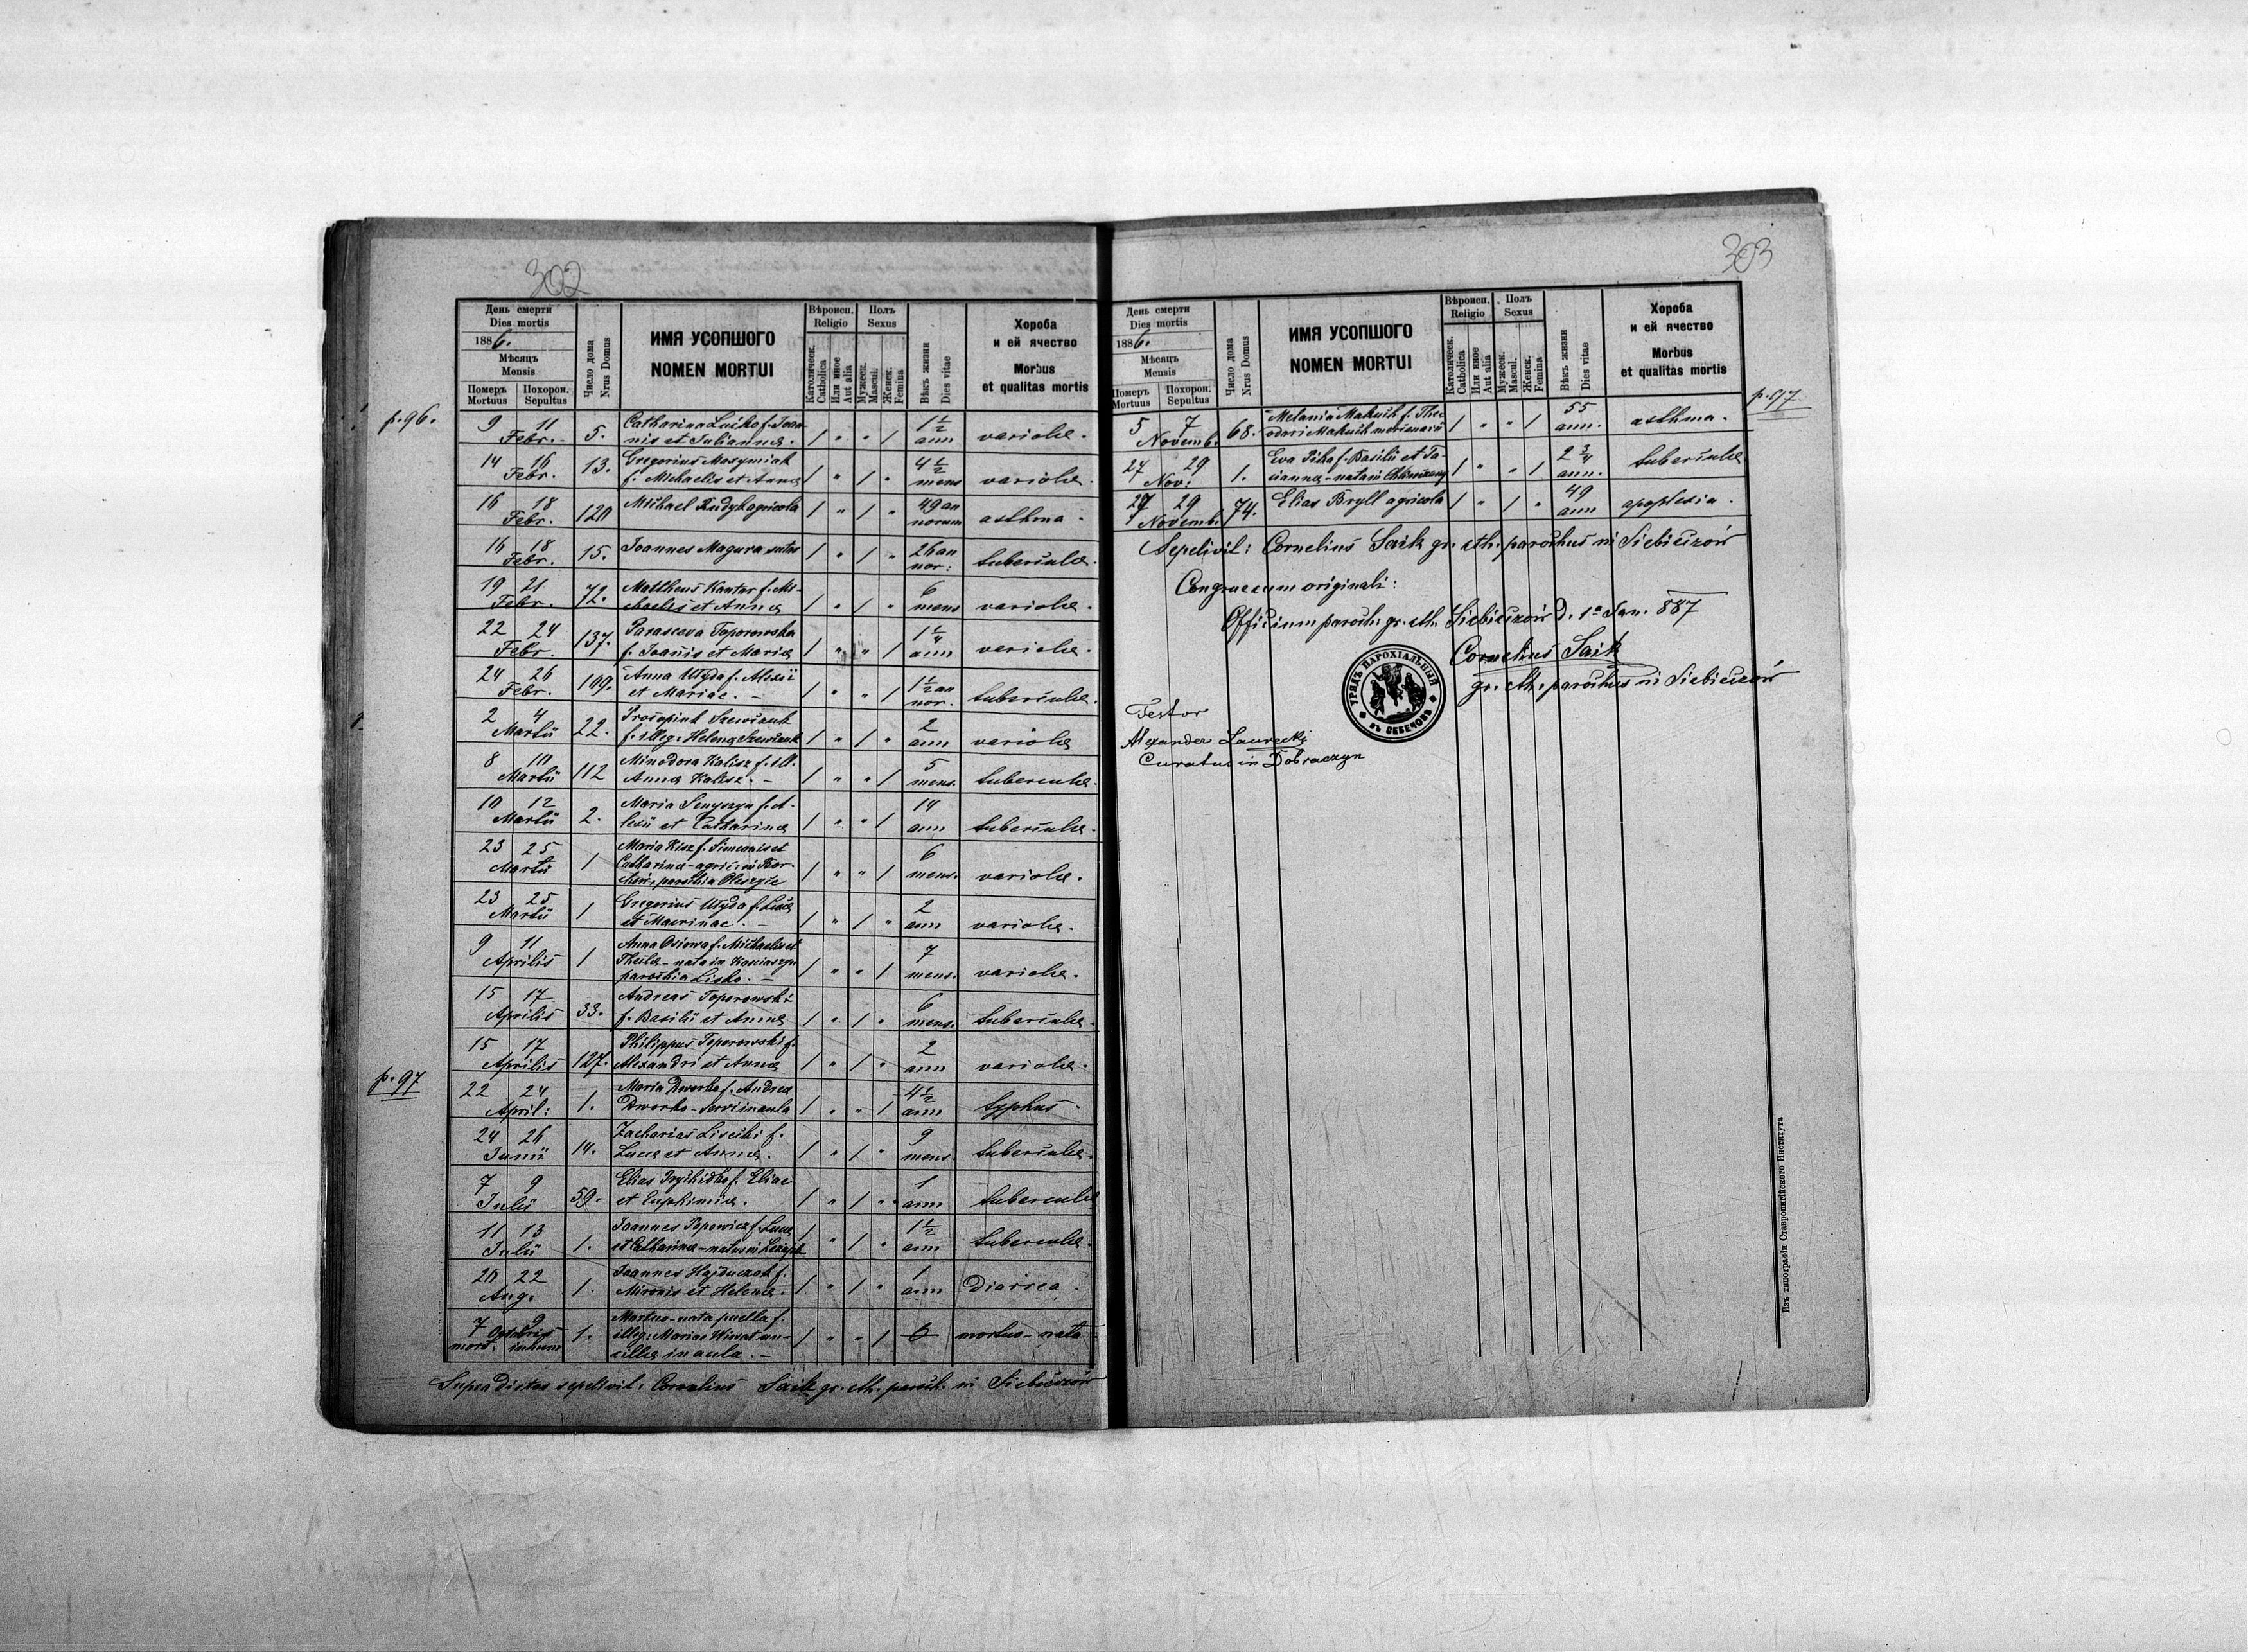 302
День смерти
Dies mortis
1886.
Мѣсяцъ
Mensis
Померъ Mortuus
Похорон. Sepultus
Число дома
Nrus Domus
ИМЯ УСОПШОГО
NOMEN MORTUI
Вѣроисп.
Religio
Католическ.
Catholica
Или иное
Aut alia
Полъ
Sexus
Мужеск.
Mascul.
Женск.
Femina
Вѣкъ жизни
Dies vitae
Хороба
и ей ячество
Morbus
et qualitas mortis
p. 96.
9 11 Febr. 5. Catharina Lučko f. Joan
nis et Julianna. / " " / 1 1/2 ann variola.
14 16 Febr. 13. Gregorius Maxymiak
f. Michaelis et Anna / " / " 4 1/2 mens variola.
16 18 Febr. 120 Michael Kudyk agricola / " / " 49 an norum asthma.
16 18 Febr. 15. Joannes Magura / " / " 26 an nor: tubercula.
19 21 Febr. 72. Mattheus Kantor f. Mi-
chaelis et Anna / " / " 6 mens variola.
22 24 Febr. 137. Parasceva Toporowska
f. Joannis et Maria / " " / 1 1/4 ann variola.
24 26 Febr. 109. Anna Wyda f. Alexii
et Mariae. — / " " / 1 1/2 an nor. tubercula.
2 4 Martii 22. Procopius Szewczuk
f. illeg: Helena Szewczuk / " / " 2 ann variola
8 10 Martii 112 Minodora Kalisz f. ill.
Anna Kalisz. — / " " / 5 mens. tubercula.
10 12 Martii 2. Maria Senyszyn f. A-
lexii et Catharina / " " / 14 ann tubercula.
23 25 Martii 1 Maria Kisz f. Simeonis et
Catharina - agric. in Bor-
parochia Oleszyce / " " / 6 mens. variola.
23 25 Martii 1 Gregorius Wyda f. Luca
et Macrinae. — / " / " 2 ann variola.
9 11 Aprilis 1 Anna Osiowa f. Michaelis et
Thecla - nata in Kosciaszyn
parochia Lisko. — / " " / 7 mens. variola.
15 17 Aprilis 33. Andreas Toporowski
f. Basilii et Anna / " / " 6 mens. tubercula.
15 17 Aprilis 127. Philippus Toporowski f.
Alexandri et Anna / " / " 2 ann variola.
p. 97
22 24 April: 1. Maria Dworko f. Andrea
Dworko - servi in aula / " " / 4 1/2 ann typhus.
24 26 Junii 14. Zacharias Lisecki f.
Luca et Anna. / " / " 9 mens. tubercula.
7 9 Julii 59. Elias Pryihidko f. Eliae
et Euphimia. / " / " 1 ann tubercula
11 13 Julii 1. Joannes Popowicz f. Luca
et Catharina - natus in / " / " 1 1/2 ann tubercula.
20 22 Aug. 1. Joannes Hajduczok f.
Mironis et Helena. / " / " 1 ann Diarrea.
7 9 Octobris mort. inhum 1. Mortuo-nata puella f.
illeg: Mariae Wiwat an-
cilla in aula. — / " " / 0 mortuo-nata
Supra dictos sepelivit: Cornelius Saik gr. cth. paroch. in Siebieczów
303
День смерти
Dies mortis
1886.
Мѣсяцъ
Mensis
Померъ Mortuus
Похорон. Sepultus
Число дома
Nrus Domus
ИМЯ УСОПШОГО
NOMEN MORTUI
Вѣроисп.
Religio
Католическ.
Catholica
Или иное
Aut alia
Полъ
Sexus
Мужеск.
Mascul.
Женск.
Femina
Вѣкъ жизни
Dies vitae
Хороба
и ей ячество
Morbus
et qualitas mortis
p. 97
5 7 Novemb. 68. Melania Makuch f. Theo
dori Makuch / " " / 55 ann. asthma.
27 29 Nov: 1. Eva Pika f. Basilii et Ta-
cianna - nata in / " " / 2 3/4 ann. tubercula
27 29 Novemb. 74. Elias Bryll agricola / " / " 49 ann apoplexia.
Sepelivit: Cornelius Saik gr. cth. parochus in Siebieczów
Congruum originali:
Officium paroch. gr. cth. Siebieczów d. 1a Jan. 887
Cornelius Saik
gr. cth. parochus in Siebieczów
УРЯДЪ ПАРОХІАЛЬНЫЙ
ВЪ СЕБЕЧОВѢ
Testor
Alexander Laurecki
Curatus in Dobraczyn
Изъ типографіи Ставропигійского Института